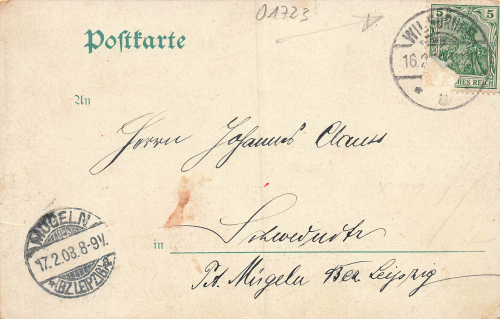 01723
Postkarte
5 5
WILSDRUFF
16.2
CHES REICH
An
Herrn Johannes Clauss
MÜGELN
17.2.03.8-9V.
*(BZ LEIPZIG)*
in Schwednitz
Pt. Mügeln Bez Leipzig